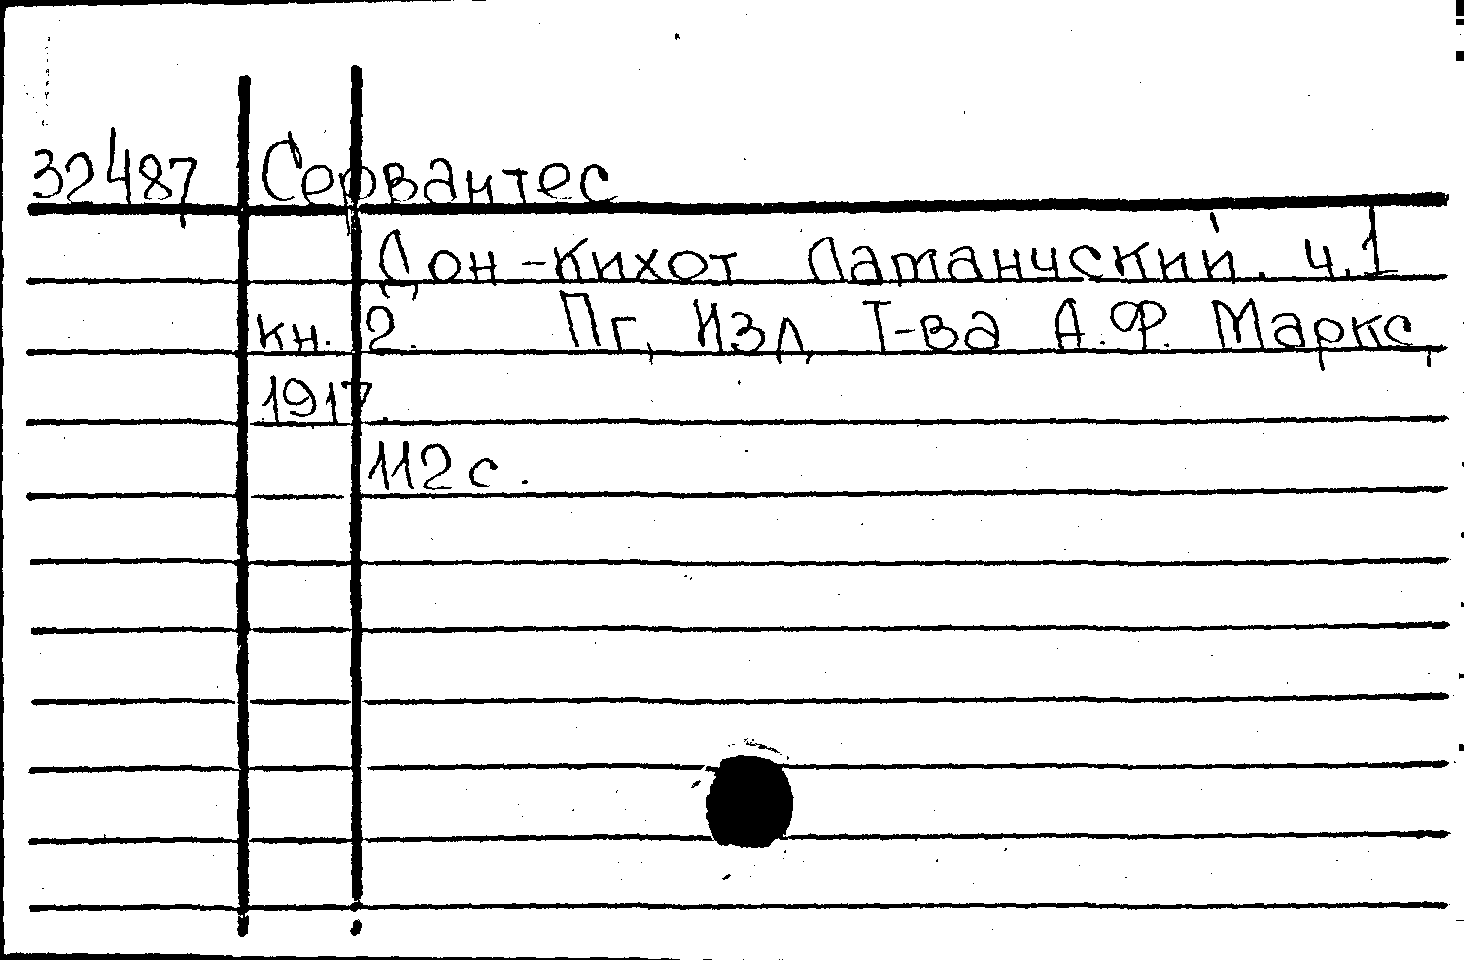 32487 Сервантес
Дон-Кихот Ламанчский. ч.1
кн. 2. Пг, Изд, Т-ва А.Ф. Маркс,
1917.
112 с.